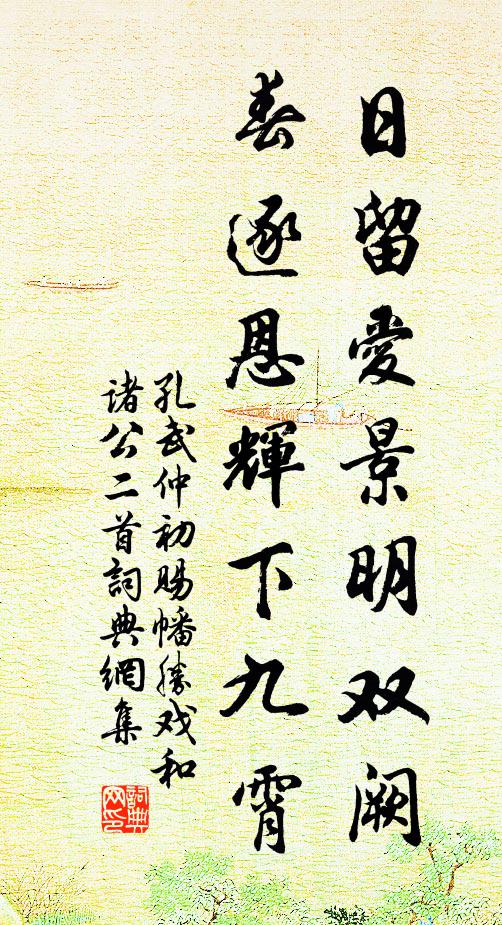 日留爱景明双阙
春逐恩輝下九霄
孔武仲初赐幡胜戏和
诸公二首詞典網集
詞典网印